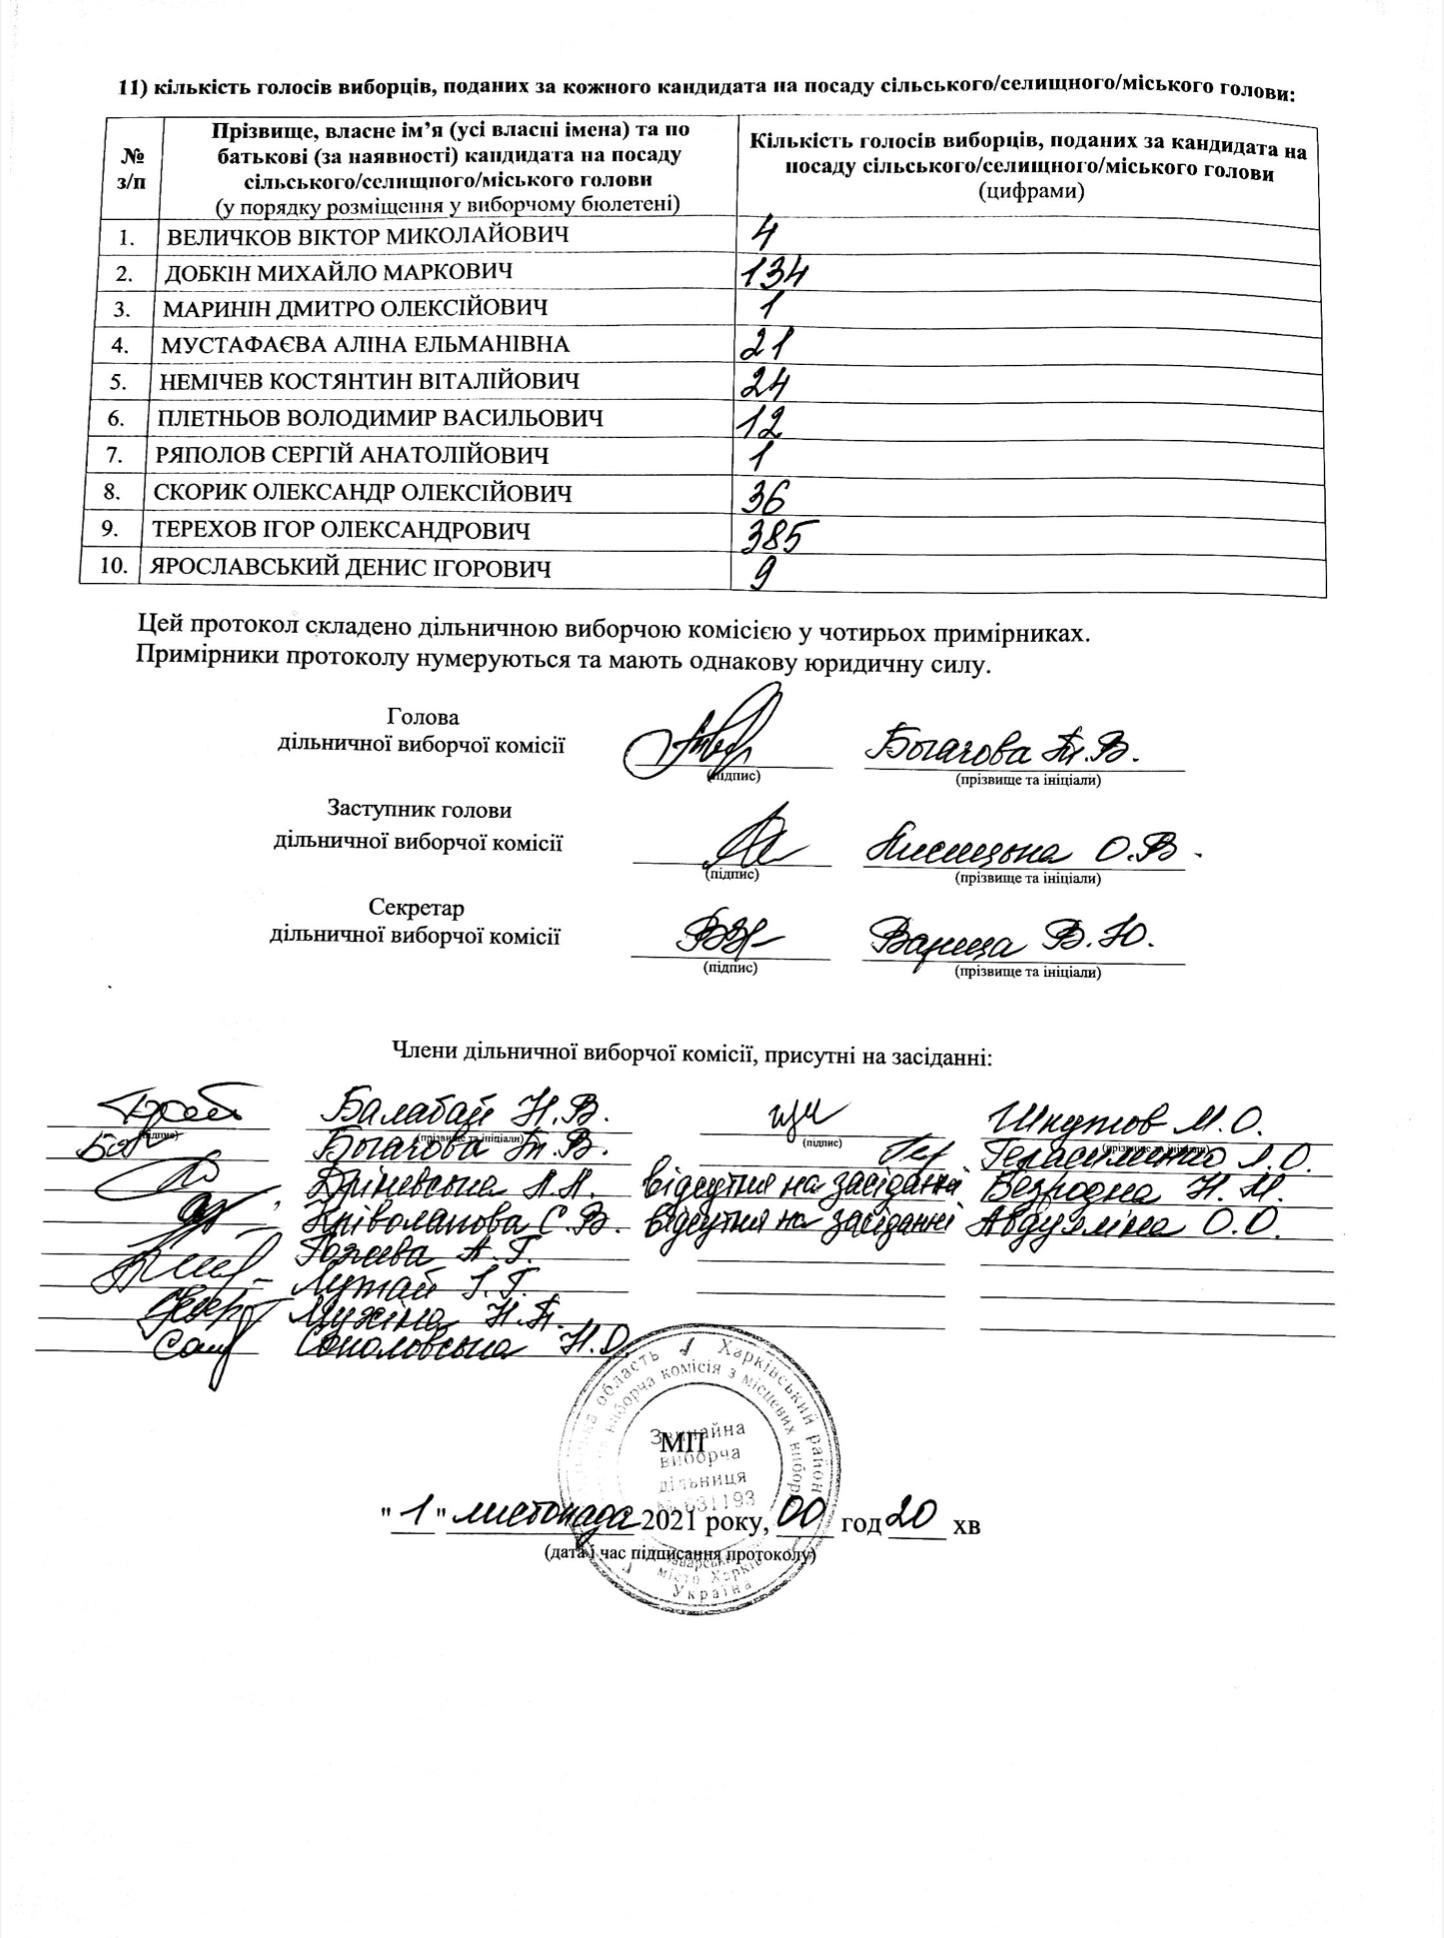 11) кількість голосів виборців, поданих за кожного кандидата на посаду сільського/селищного/міського голови:
№ з/п
Прізвище, власне ім’я (усі власні імена) та по
батькові (за наявності) кандидата на посаду
сільського/селищного/міського голови
(у порядку розміщення у виборчому бюлетені)
Кількість голосів виборців, поданих за кандидата на
посаду сільського/селищного/міського голови
(цифрами)
1. ВЕЛИЧКОВ ВІКТОР МИКОЛАЙОВИЧ 4
2. ДОБКІН МИХАЙЛО МАРКОВИЧ 134
3. МАРИНІН ДМИТРО ОЛЕКСІЙОВИЧ 1
4. МУСТАФАЄВА АЛІНА ЕЛЬМАНІВНА 21
5. НЕМІЧЕВ КОСТЯНТИН ВІТАЛІЙОВИЧ 24
6. ПЛЕТНЬОВ ВОЛОДИМИР ВАСИЛЬОВИЧ 12
7. РЯПОЛОВ СЕРГІЙ АНАТОЛІЙОВИЧ 1
8. СКОРИК ОЛЕКСАНДР ОЛЕКСІЙОВИЧ 36
9. ТЕРЕХОВ ІГОР ОЛЕКСАНДРОВИЧ 385
10. ЯРОСЛАВСЬКИЙ ДЕНИС ІГОРОВИЧ 9
Цей протокол складено дільничною виборчою комісією у чотирьох примірниках.
Примірники протоколу нумеруються та мають однакову юридичну силу.
Голова
дільничної виборчої комісії Т.В.
(підпис) (прізвище та ініціали)
Заступник голови
дільничної виборчої комісії О.В.
(підпис) (прізвище та ініціали)
Секретар
дільничної виборчої комісії В.Ю.
(підпис) (прізвище та ініціали)
Члени дільничної виборчої комісії, присутні на засіданні:
Балабай Н.В. Шкутов М.О.
(підпис) (прізвище та ініціали) (підпис) (прізвище та ініціали)
Т.В. Герасименко Л.О.
відсутня на засіданні Безродна Н.М.
С.В. відсутня на засіданні О.О.
А.Г.
Лутай І.Г.
Мухіна Н.Т.
Соколовська Н.О.
область Харківський район
виборча комісія з місцевих вибор
Звичайна
МП
виборча
дільниця
№ 631193
"1" листопада 2021 року, 00 год 20 хв
(дата і час підписання протоколу)
місто Харків
Україна